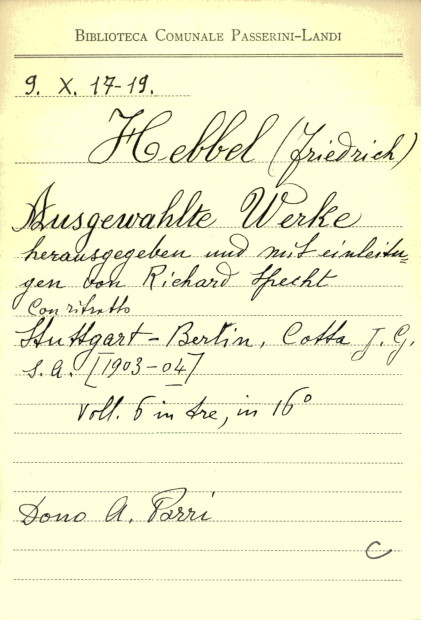 BIBLIOTECA COMUNALE PASSERINI-LANDI
9. X. 17-19.
Hebbel (Friedrich)
Ausgewahlte Werke
herausgegeben und mit einleitu=
gen von Richard Specht
Con ritratto
Stuttgart - Berlin, Cotta J. G.
s. a. [1903-04]
Voll. 6 in tre, in 16°
Dono A. Parri
C